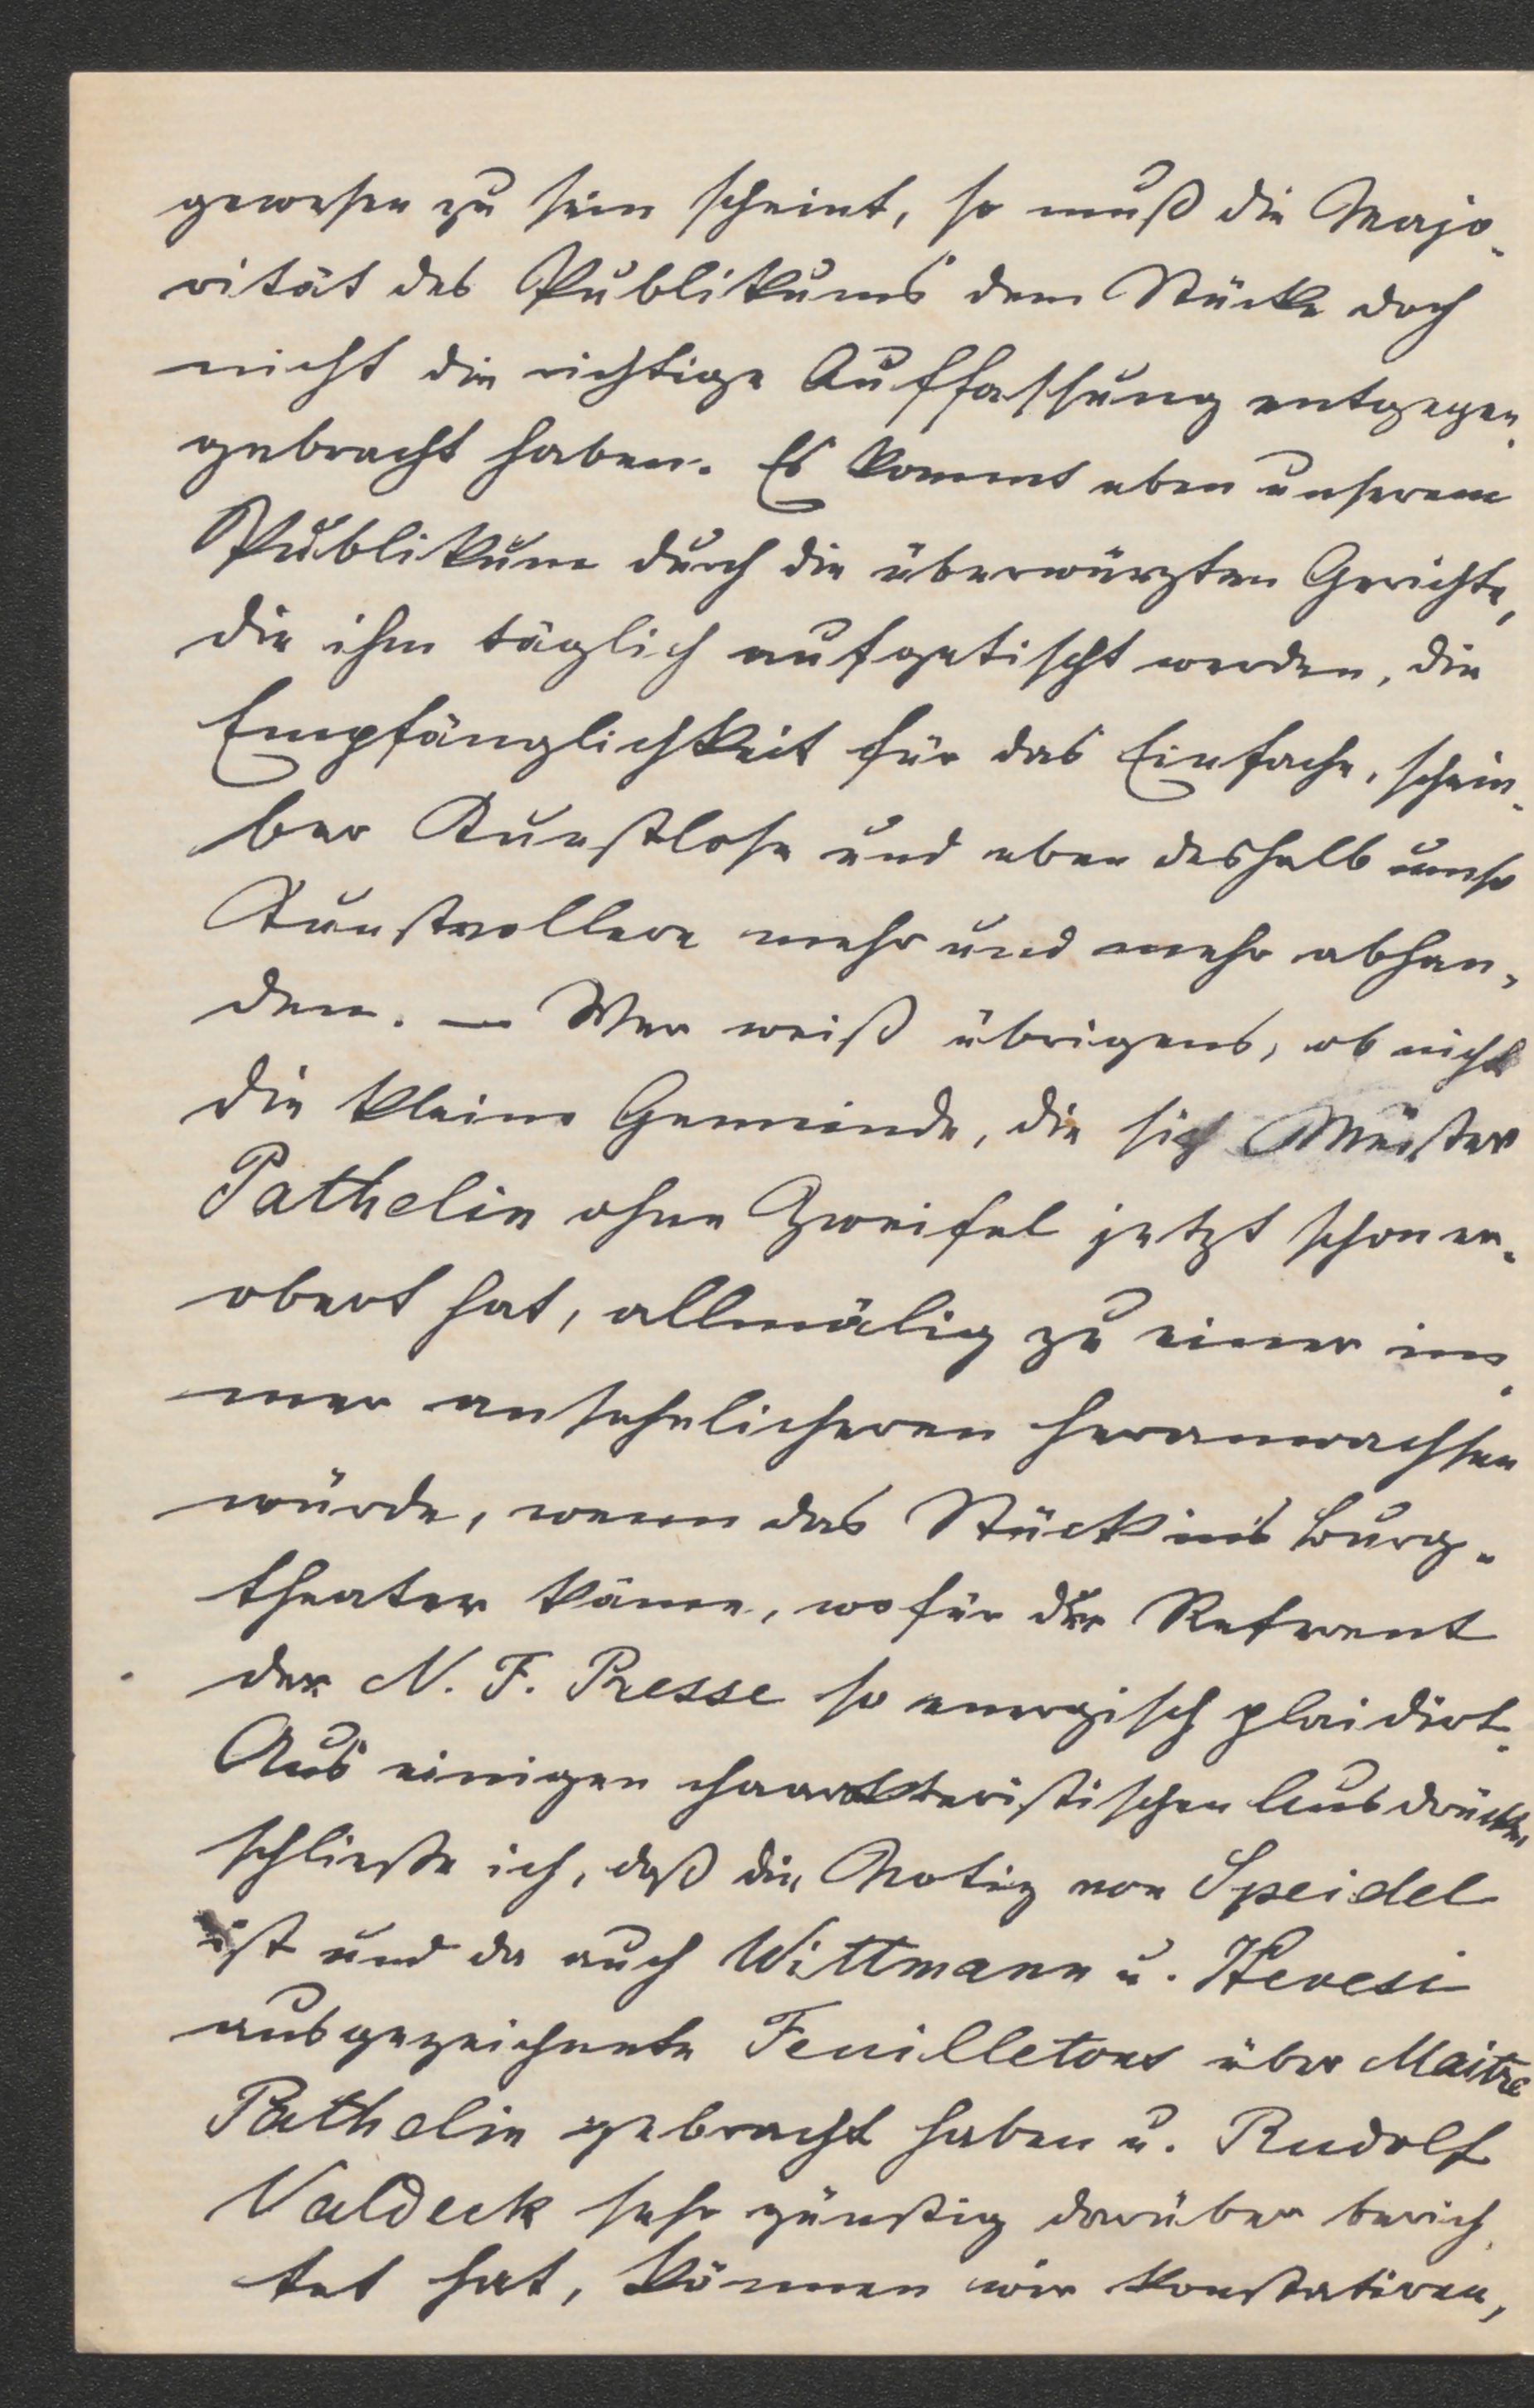 gewesen zu sein scheint, so muß die Majo-
rität des Publikums dem Stücke doch
nicht die richtige Auffassung entgegen-
gebracht haben. Es kommt eben unserem
Publikum durch die überwürzten Gerichte,
die ihm täglich aufgetischt werden, die
Empfänglichkeit für das Einfache, schein-
bar Kunstlose und eben deshalb umso
Kunstvollere mehr und mehr abhan-
den. — Wer weiß übrigens, ob nicht
die kleine Gemeinde, die sich Meister
Pathelin ohne Zweifel jetzt schon er-
obert hat, allmälig zu einer im-
mer ansehnlicheren heranwachsen
würde, wenn das Stück in's Burg-
theater käme, wofür der Referent
der N. F. Presse so energisch plaidirt.
Aus einigen charakteristischen Ausdrücken
schließe ich, daß die Notiz von Speidel
ist und da auch Wittmann u. Hevesi
ausgezeichnete Feuilletons über Maitre
Pathelin gebracht haben u. Rudolf
Valdeck sehr günstig darüber berich-
tet hat, können wir konstatiren,